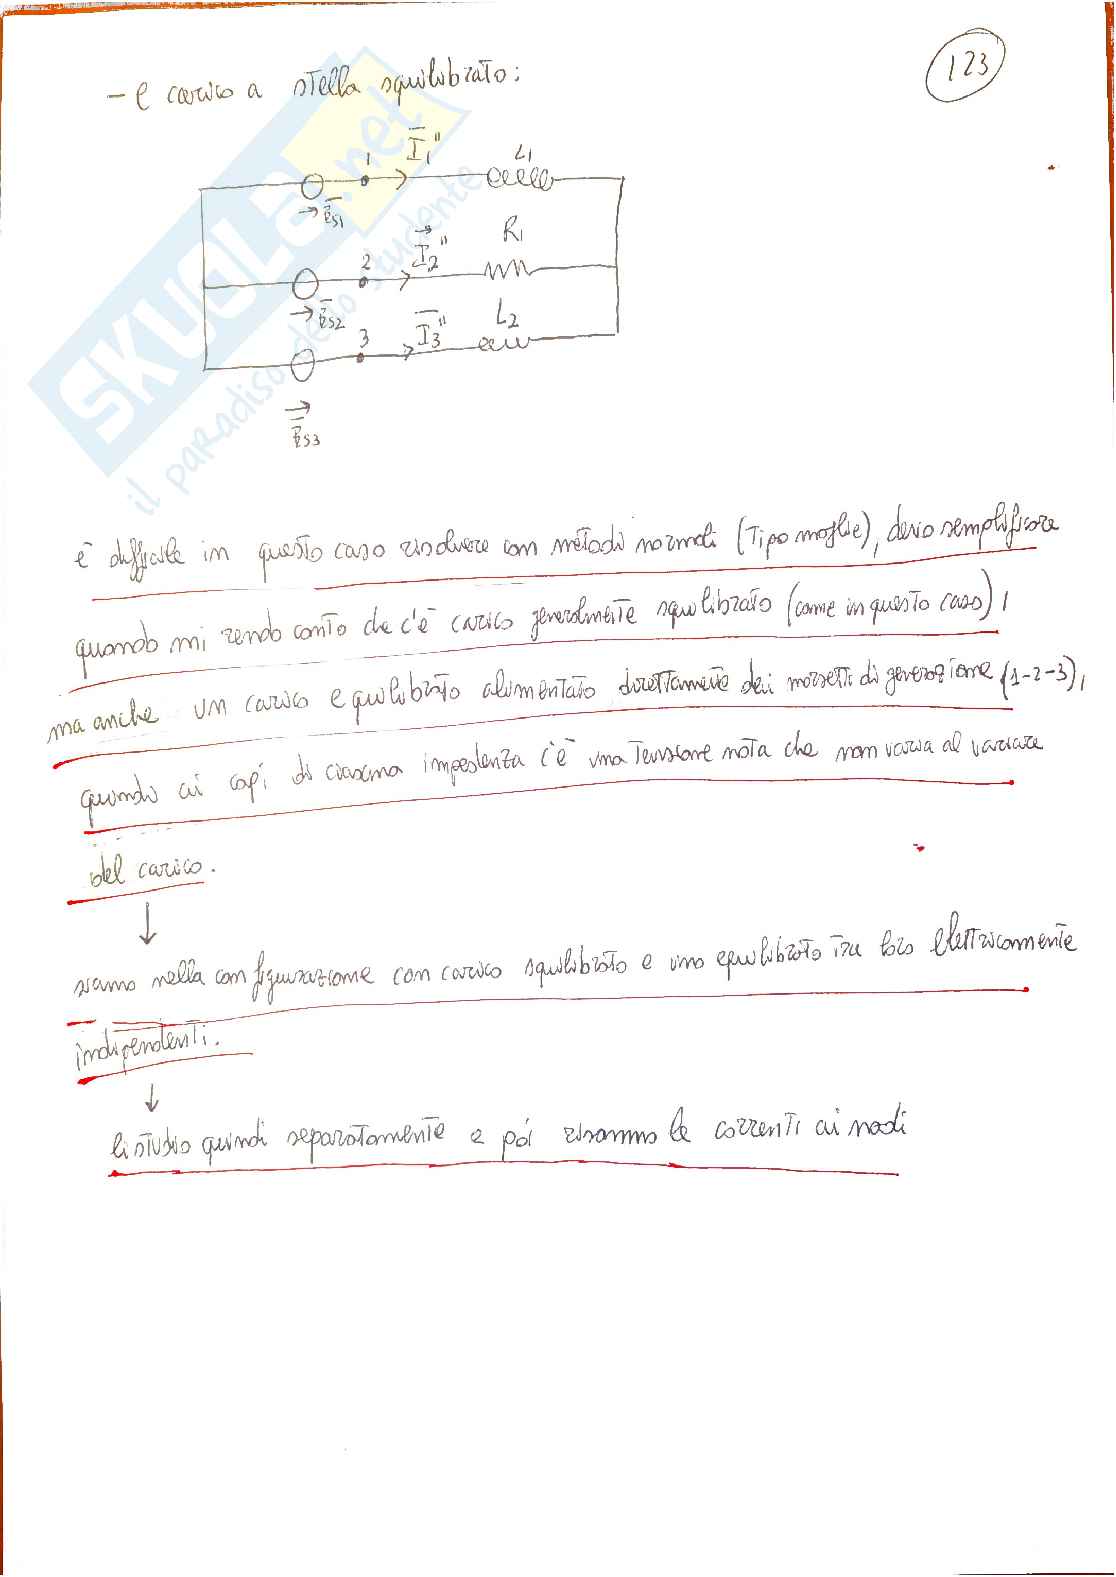 123
- e carico a stella squilibrato:
1 I1" L1
ES1
R1
2 I2"
ES2
L2
3 I3"
ES3
SKUOLA.net
il paradiso dello studente
è difficile in questo caso risolvere con metodi normali (tipo maglie), devo semplificare
quando mi rendo conto che c'è carico generalmente squilibrato (come in questo caso),
ma anche un carico equilibrato alimentato direttamente dai morsetti di generazione (1-2-3),
quando ai capi di ciascuna impedenza c'è una tensione nota che non varia al variare
del carico.
↓
siamo nella configurazione con carico squilibrato e uno equilibrato tra loro elettricamente
indipendenti.
↓
li studio quindi separatamente e poi risommo le correnti ai nodi